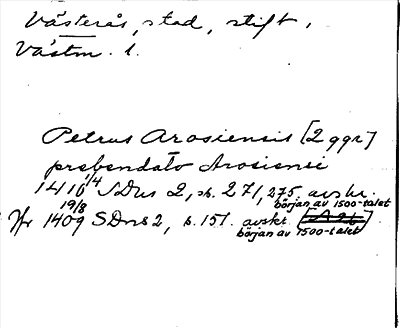 Västerås, stad, stift,
Västm. l.
Petrus Arosiensis [2 ggr]
prebendato Arosiensi
1416 1/4 SDns 2, s. 271, 275 avskr.
början av 1500-talet
Jfr 1409 19/8 SDns 2, s. 151. avskr.
början av 1500-talet